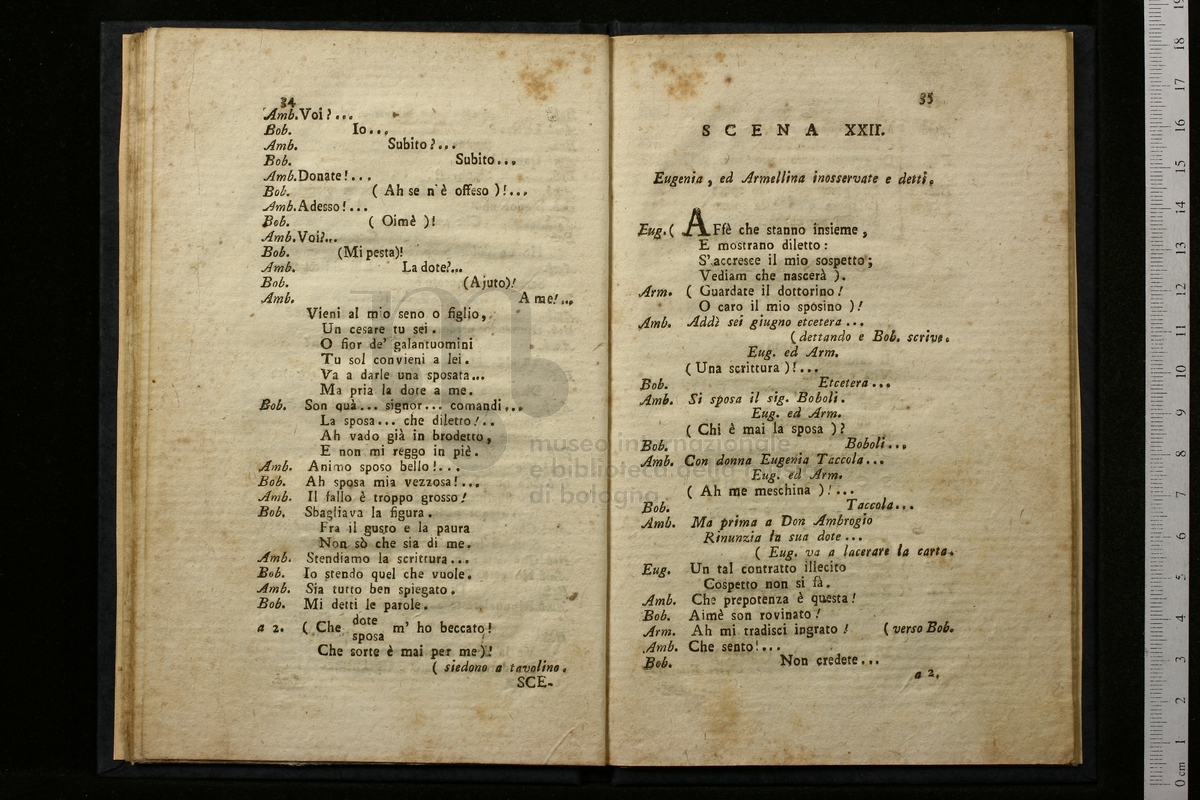 34
Amb. Voi?...
Bob. Io...
Amb. Subito?...
Bob. Subito...
Amb. Donate!...
Bob. ( Ah se n'è offeso )!...
Amb. Adesso!...
Bob. ( Oimè )!
Amb. Voi?...
Bob. (Mi pesta)!
Amb. La dote?...
Bob. (Ajuto)!
Amb. A me!...
Vieni al mio seno o figlio,
Un cesare tu sei.
O fior de' galantuomini
Tu sol convieni a lei.
Va a darle una sposata...
Ma pria la dote a me.
Bob. Son quà... signor... comandi...
La sposa... che diletto!..
Ah vado già in brodetto,
E non mi reggo in piè.
Amb. Animo sposo bello!...
Bob. Ah sposa mia vezzosa!...
Amb. Il fallo è troppo grosso!
Bob. Sbagliava la figura.
Fra il gusto e la paura
Non sò che sia di me.
Amb. Stendiamo la scrittura...
Bob. Io stendo quel che vuole.
Amb. Sia tutto ben spiegato.
Bob. Mi detti le parole.
a 2. ( Che dote sposa m' ho beccato!
Che sorte è mai per me)!
( siedono a tavolino.
SCE-
35
SCENA XXII.
Eugenia, ed Armellina inosservate e detti.
Eug. ( AFfè che stanno insieme,
E mostrano diletto:
S'accresce il mio sospetto;
Vediam che nascerà ).
Arm. ( Guardate il dottorino!
O caro il mio sposino )!
Amb. Addì sei giugno etcetera...
( dettando e Bob. scrive.
Eug. ed Arm.
( Una scrittura )!...
Bob. Etcetera...
Amb. Si sposa il sig. Boboli.
Eug. ed Arm.
( Chi è mai la sposa )?
Bob. Boboli...
Amb. Con donna Eugenia Taccola...
Eug. ed Arm.
( Ah me meschina )!...
Bob. Taccola...
Amb. Ma prima a Don Ambrogio
Rinunzia la sua dote...
( Eug. va a lacerare la carta.
Eug. Un tal contratto illecito
Cospetto non si fà.
Amb. Che prepotenza è questa!
Bob. Aimè son rovinato!
Arm. Ah mi tradisci ingrato! ( verso Bob.
Amb. Che sento!...
Bob. Non credete...
a 2.
museo internazionale
e biblioteca della musica
di bologna